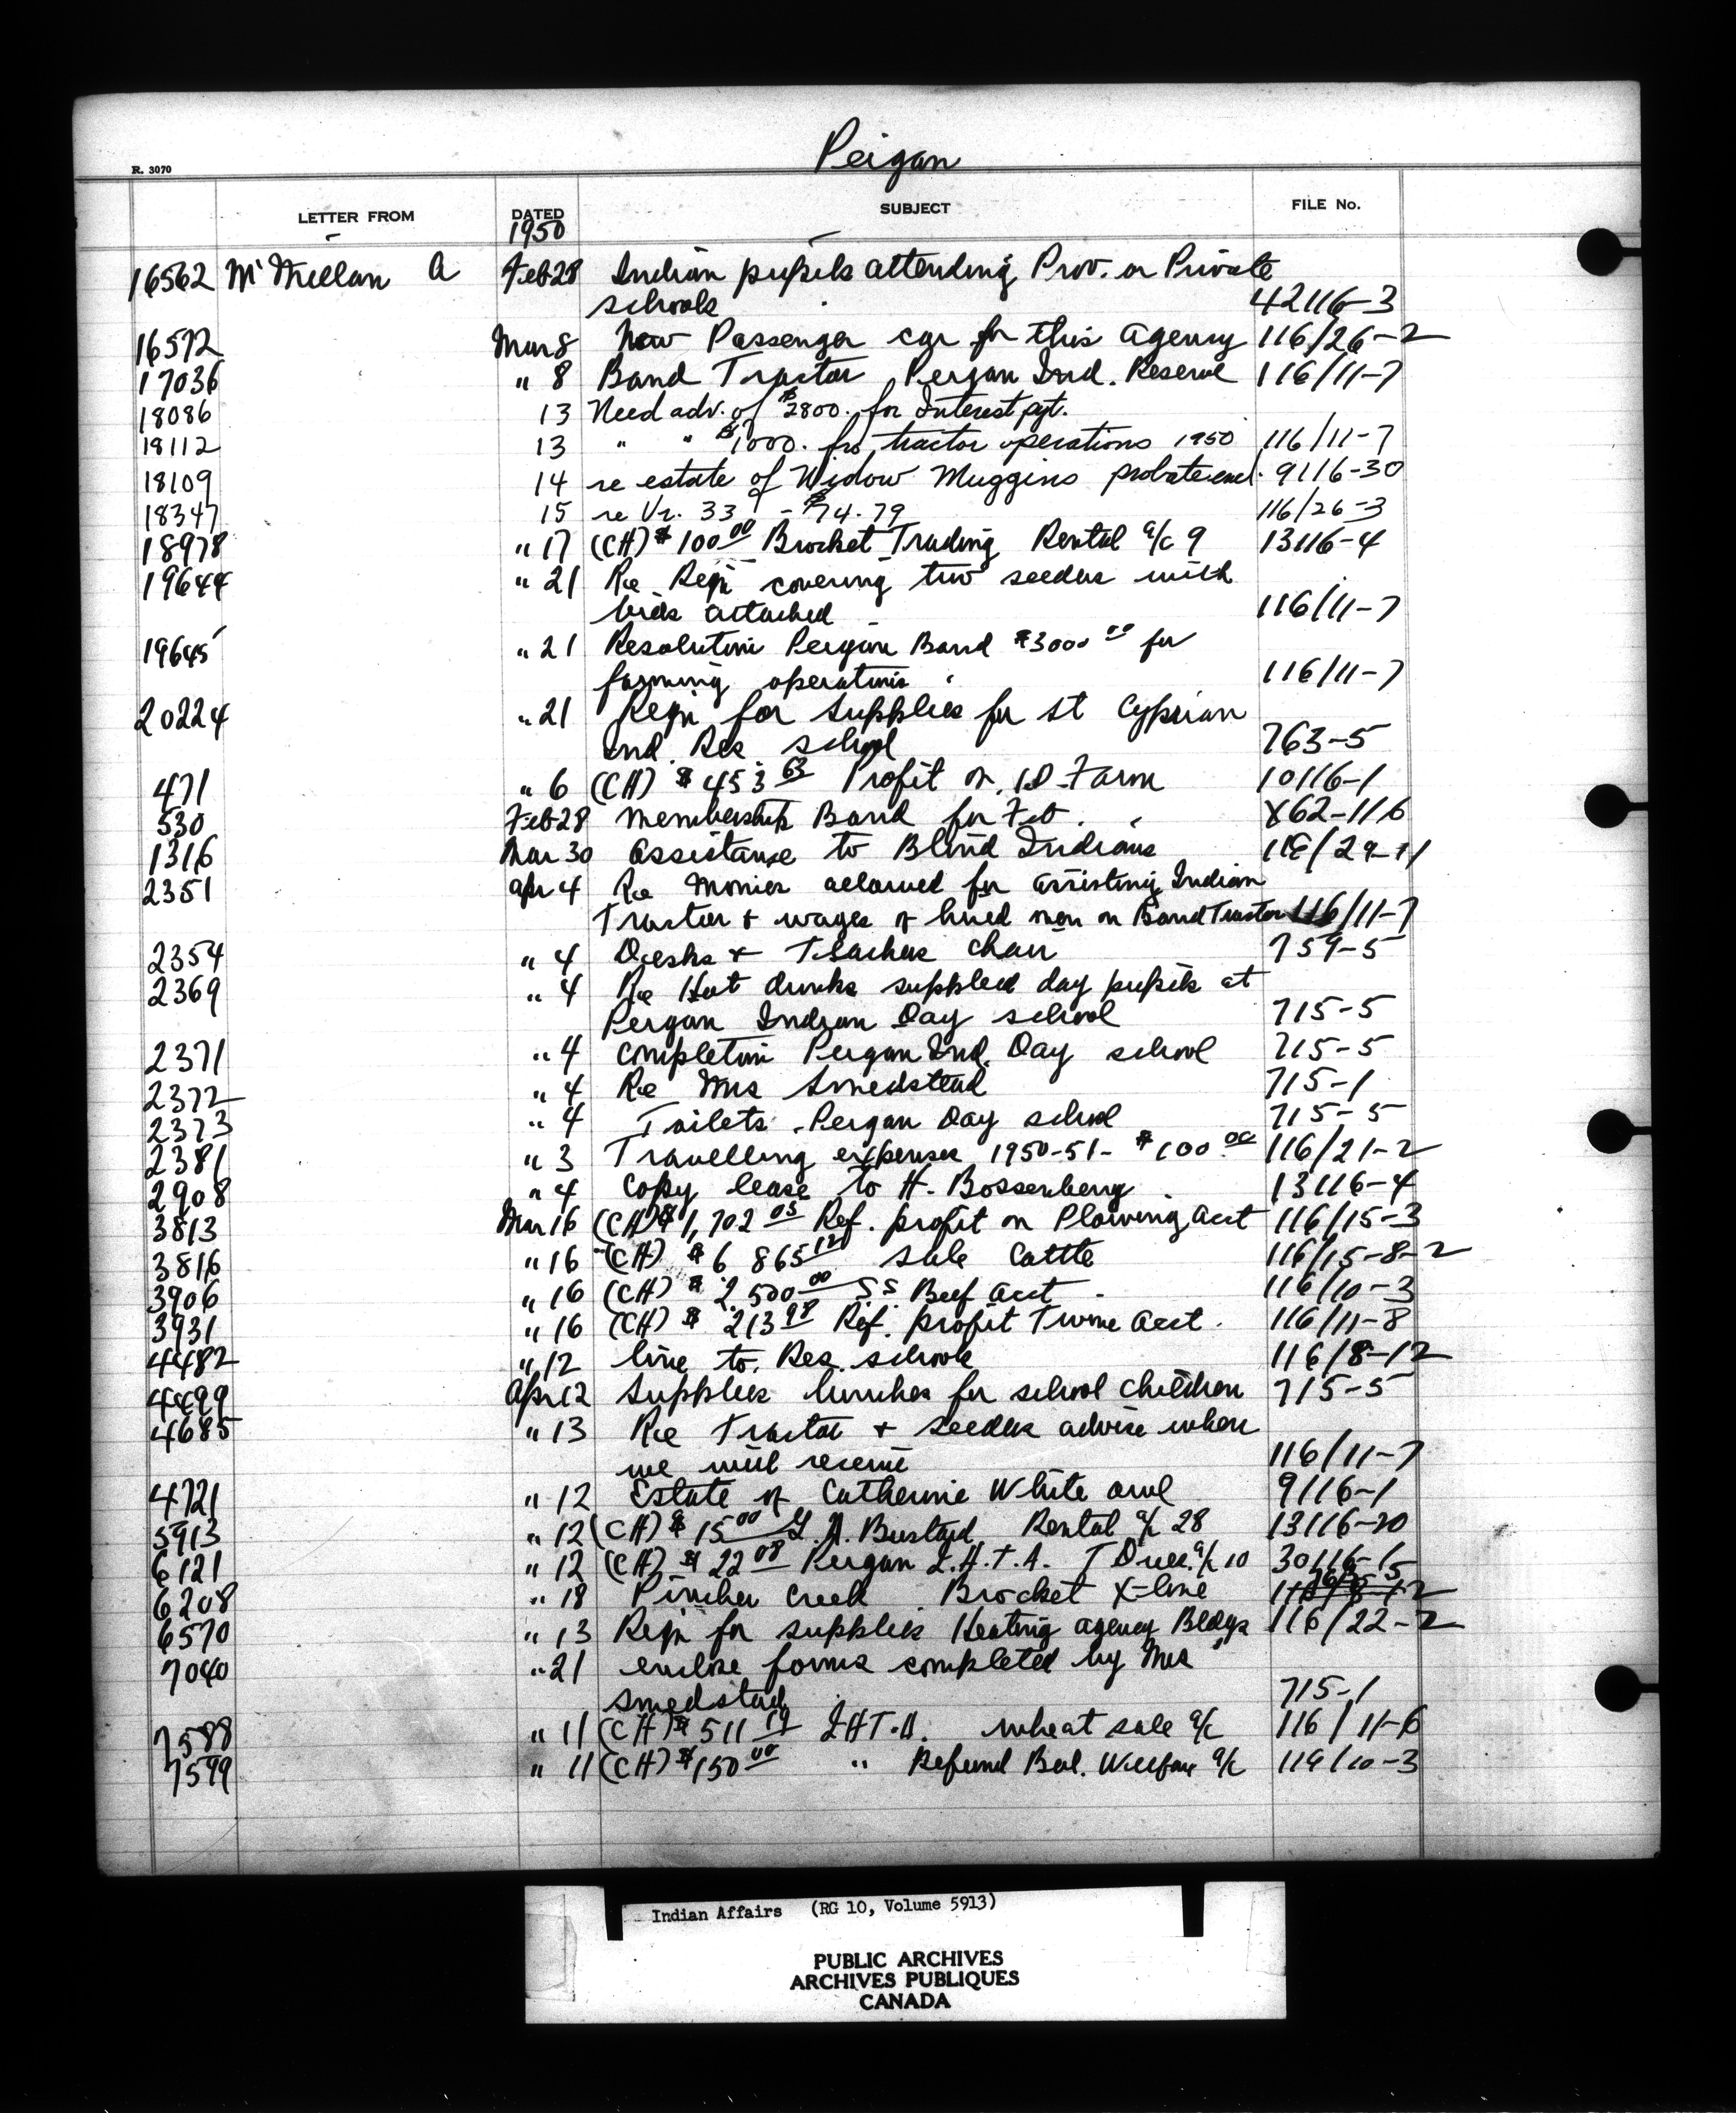 Peigan
R. 3070
LETTER FROM DATED SUBJECT FILE No.
1950
16562 McMillan A Feb 28 Indian pupils attending Prov. or Private
schools 42116-3
16572 Mar 8 New Passenger car for this agency 116/26-2
17036 " 8 Band Tractor Peigan Ind. Reserve 116/11-7
18086 13 Need adv. of $2800. for Interest pyt.
18112 13 " " $1000. for tractor operations 1950 116/11-7
18109 14 re estate of Widow Muggins probate encl. 9116-30
18347 15 re Vr. 33 - $74.79 116/26-3
18978 " 17 (CH) $100 00 Brocket Trading Rental a/c 9 13116-4
19644 " 21 Re Reqn covering two seeders with
bids attached 116/11-7
19645 " 21 Resolution Peigan Band $3000 00 for
farming operations 116/11-7
20224 " 21 Reqn for supplies for St Cyprian
Ind. Res school 763-5
471 " 6 (CH) $453 63 Profit on I.D. Farm 10116-1
530 Feb 28 membership Band for Feb. X62-116
1316 Mar 30 Assistance to Blind Indians 116/29-11
2351 Apr 4 Re Monies allowed for assisting Indian
Tractor & wages of hired men on Band Tractor 116/11-7
2354 " 4 Desks & Teachers chair 759-5
2369 " 4 Re Hot drinks supplied day pupils at
Peigan Indian Day school 715-5
2371 " 4 completion Peigan Ind. Day school 715-5
2372 " 4 Re Mrs Smedstead 715-1
2373 " 4 Toilets - Peigan Day school 715-5
2381 " 3 Travelling expenses 1950-51 - $100.00 116/21-2
2908 " 4 Copy lease to H. Bossenberry 13116-4
3813 Mar 16 (CH) $1,702 05 Ref. profit on Plowing acct 116/15-3
3816 " 16 (CH) $6 865 12 Sale Cattle 116/15-8-2
3906 " 16 (CH) $2,500 00 S.S. Beef acct 116/10-3
3931 " 16 (CH) $213 98 Ref. profit Twine acct. 116/11-8
4482 " 12 line to Res. schools 116/8-12
4499 Apr 12 Supplies lunches for school children 715-5
4685 " 13 Re Tractor & seeders advise when
we will receive 116/11-7
4721 " 12 Estate of Catherine White owl 9116-1
5913 " 12 (CH) $15 00 Bustard Rental a/c 28 13116-20
6121 " 12 (CH) $22 08 Peigan I.H.T.A. T Dues a/c 10 30116-1
6208 " 18 Pincher Creek Brocket X-line 116/8-12 763-5
6570 " 13 Reqn for supplies Heating agency Bldgs 116/22-2
7040 " 21 enclose forms completed by Mrs
Smedstad 715-1
7588 " 11 (CH) $511 19 I.H.T.A. wheat sale a/c 116/11-6
7599 " 11 (CH) $150 00 " Refund Bal. Welfare a/c 119/10-3
Indian Affairs (RG 10, Volume 5913)
PUBLIC ARCHIVES
ARCHIVES PUBLIQUES
CANADA